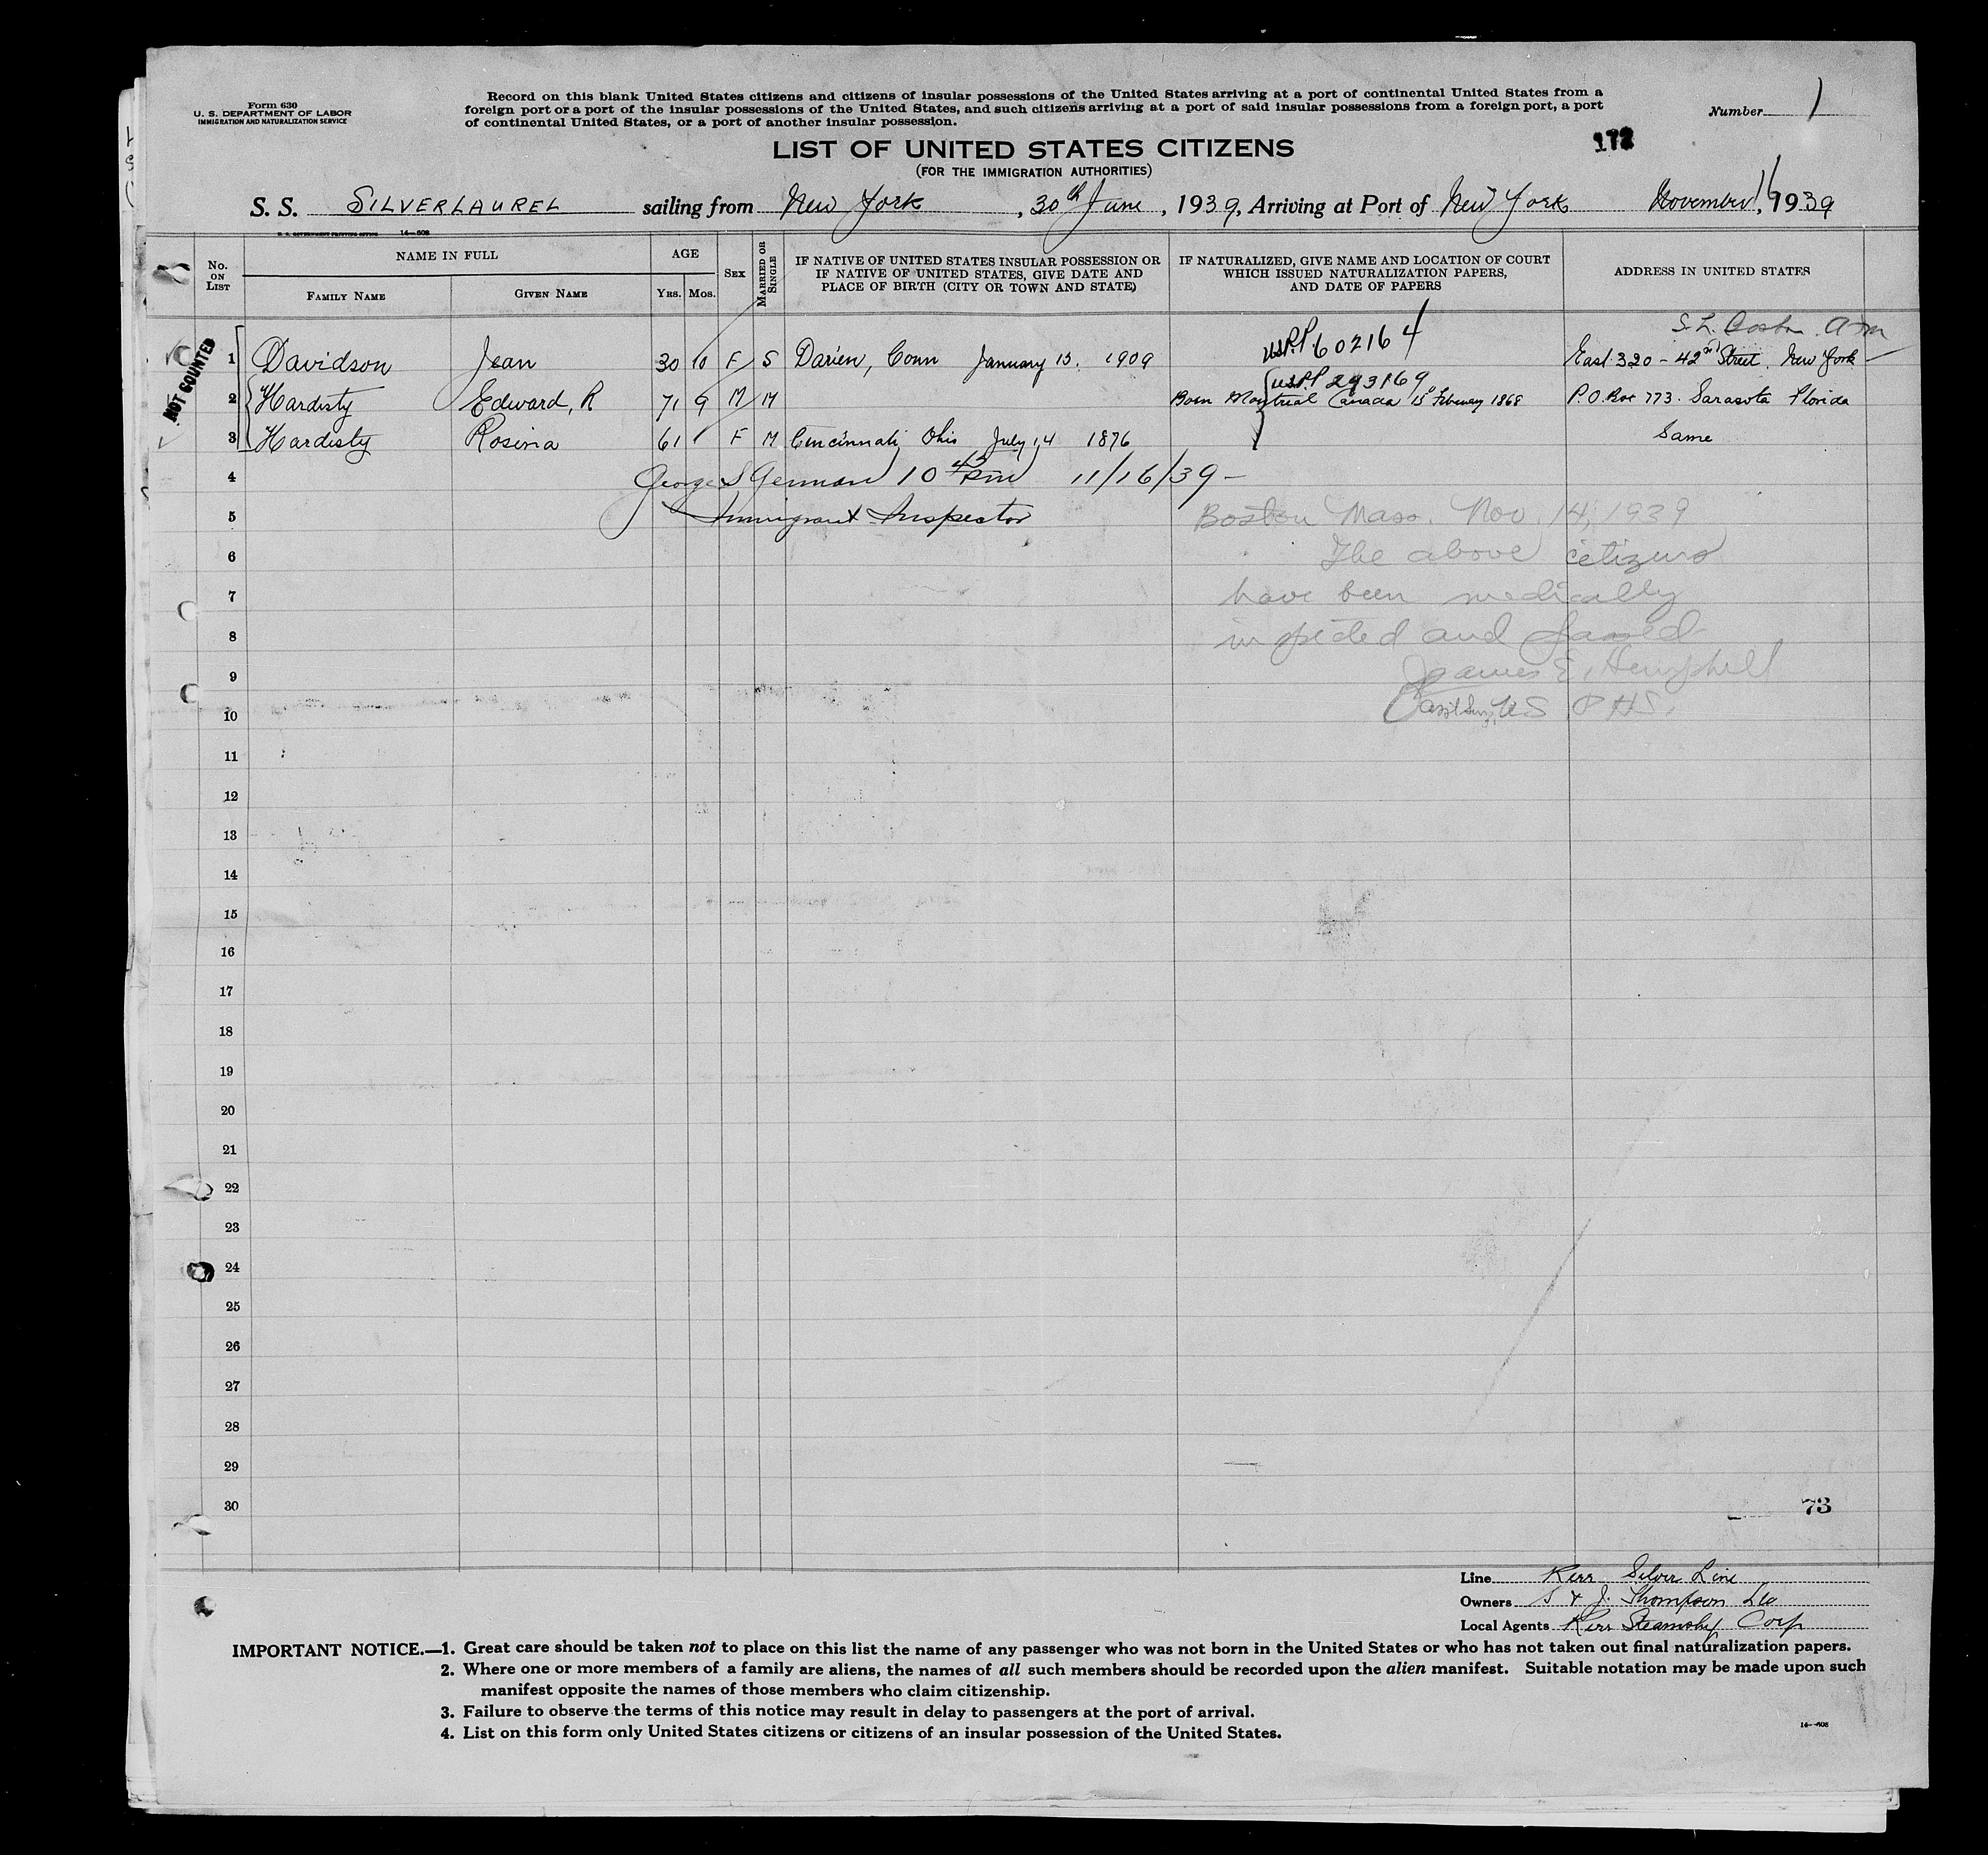 Form 630
U. S. DEPARTMENT OF LABOR
IMMIGRATION AND NATURALIZATION SERVICE
Record on this blank United States citizens and citizens of insular possessions of the United States arriving at a port of continental United States from a
foreign port or a port of the insular possessions of the United States, and such citizens arriving at a port of said insular possessions from a foreign port, a port
of continental United States, or a port of another insular possession.
Number 1
LIST OF UNITED STATES CITIZENS
172
(FOR THE IMMIGRATION AUTHORITIES)
S. S. SILVERLAUREL sailing from New York, 30th June, 1939, Arriving at Port of New York November 16, 1939
U. S. GOVERNMENT PRINTING OFFICE 14—608
No. ON LIST
NAME IN FULL
FAMILY NAME
GIVEN NAME
AGE
YRS. MOS.
SEX
MARRIED OR SINGLE
IF NATIVE OF UNITED STATES INSULAR POSSESSION OR
IF NATIVE OF UNITED STATES, GIVE DATE AND
PLACE OF BIRTH (CITY OR TOWN AND STATE)
IF NATURALIZED, GIVE NAME AND LOCATION OF COURT
WHICH ISSUED NATURALIZATION PAPERS,
AND DATE OF PAPERS
ADDRESS IN UNITED STATES
NOT COUNTED
S. L. Boston
U.S.P.P. 602164
1 Davidson Jean 30 10 F S Darien, Conn January 15. 1909 East 320 - 42nd Street. New York
U.S.P.P. 293169
2 Hardisty Edward, R 71 9 M M Born Montreal Canada 15 February 1868 P.O. Box 773. Sarasota Florida
3 Hardisty Rosina 61 F M Cincinnati, Ohio July 14 1876 Same
4 George S German 10 45 11/16/39 -
5 Immigrant Inspector Boston Mass. Nov. 14, 1939
6 The above citizens
7 have been medically
8 inspected and passed
9 James E. Hemphill
10 asst Surg, US PHS.
11
12
13
14
15
16
17
18
19
20
21
22
23
24
25
26
27
28
29
30 73
Line Kerr Silver Line
Owners S & J. Thompson Ltd
Local Agents Kerr Steamship Corp
IMPORTANT NOTICE.—1. Great care should be taken not to place on this list the name of any passenger who was not born in the United States or who has not taken out final naturalization papers.
2. Where one or more members of a family are aliens, the names of all such members should be recorded upon the alien manifest. Suitable notation may be made upon such
manifest opposite the names of those members who claim citizenship.
3. Failure to observe the terms of this notice may result in delay to passengers at the port of arrival.
4. List on this form only United States citizens or citizens of an insular possession of the United States.
14—608